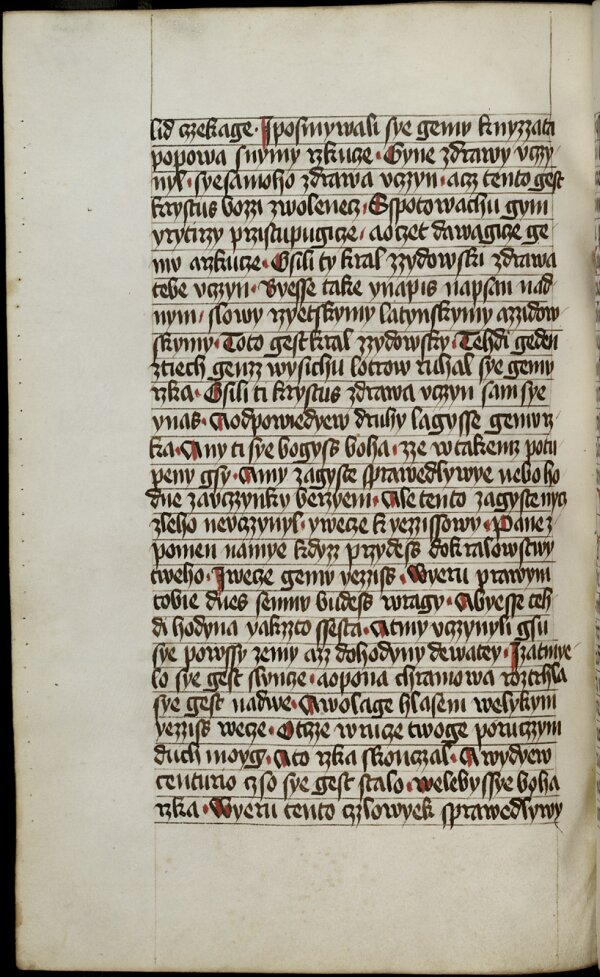 lid czekage · J posmywali sye gemu knyzzata
popowa snymy rzkucze · Gyne zdrawy vczy
nyl · sye samoho zdrawa vczyn · acz tento gest
krystus bozzi zwolenecz · Esspotowachu gym
yrytirzy przistupugicze / a oczet dawagicze ge
mu arzkucze · Gsili ty kral zzydowsky zdrawa
tebe vczyn · Byesse take ynapis napsan nad
nym / slowy rzyetskymy latynskymy azzidow
skymy · Toto gest kral zzydowsky · Tehdi geden
ztiech genzz wysichu lotrow ruhal sye gemu
rzka · Gsili ti krystus zdrawa vczyn sam sye
ynas · Aodpowiedyew druhy lagysse gemu rz
ka · Any ti sye bogyss boha · zze wtakemz potu
peny gsy · Amy zagyste sprawedlywye nebo ho
dne zavczynky berzyem · Ale tento zagyste nycz
zleho nevczynyl · ywecze k yezzissowy · Pane z
pomen namye kdyzz przydess dokralowstwy
tweho · J wecze gemu yezziss · Wyeru prawym
tobie dnes semnu budess wragy · Abyesse teh
di hodyna yakzto ssesta · Atmy vczynyli gsu
sye powssy zemy azz dohodyny dewatey · Jzatmye
lo sye gest slunce · aopona chramowa roztrhla
sye gest nadwe · Awolage hlasem welykym
yezziss wecze · Otcze wrucze twoge poruczym
duch moyg · Ato rzka skonczal · Awydyew
centurio czso sye gest stalo · welebyssye boha
rzka · Wyeru tento czlowyek sprawedlywy